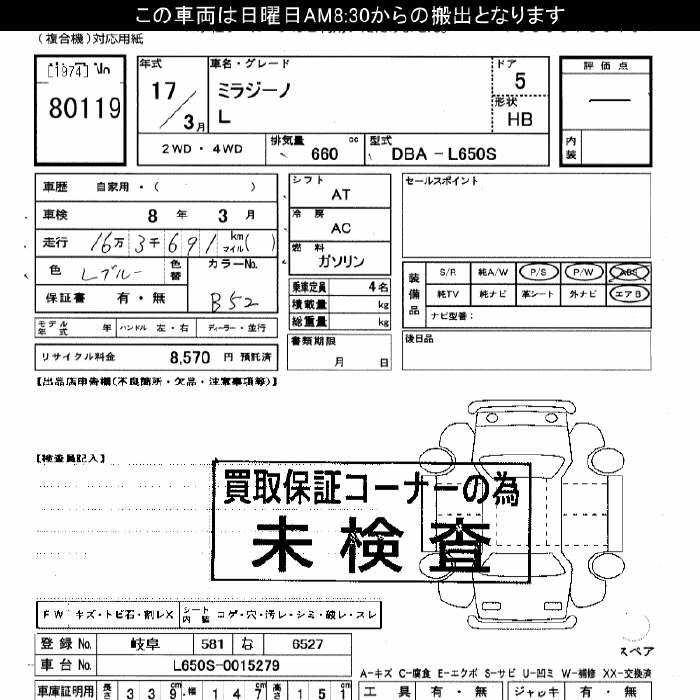 この車両は日曜日AM8:30からの搬出となります
(複合機)対応用紙
[1974] No
80119
年式
17
/3月
車名・グレード
ミラジーノ
L
ドア
5
形状
HB
評価点
内装
2WD・4WD
排気量
cc
660
型式
DBA-L650S
車歴 自家用・( )
車検 8年 3月
走行 16万3千691 km マイル( )
色 Lブルー
色替
カラーNo.
B52
保証書 有・無
モデル年式 年
ハンドル 左・右
ディーラー・並行
リサイクル料金 8,570 円 預託済
シフト
AT
冷房
AC
燃料
ガソリン
乗車定員 4名
積載量 kg
総重量 kg
書類期限
月 日
セールスポイント
装備品
S/R 純A/W P/S P/W ABS
純TV 純ナビ 革シート 外ナビ エアB
ナビ型番:
後日品
【出品店申告欄(不良箇所・欠品・注意事項等)】
【検査員記入】
買取保証コーナーの為
未検査
FW キズ・トビ石・割レX
シート内装 コゲ・穴・汚レ・シミ・破レ・スレ
登録No. 岐阜 581 な 6527
車台No. L650S-0015279
スペア
A-キズ C-腐食 E-エクボ S-サビ U-凹ミ W-補修 XX-交換済
車庫証明用 長さ 339cm 幅 147cm 高さ 151cm
工具 有・無
ジャッキ 有・無